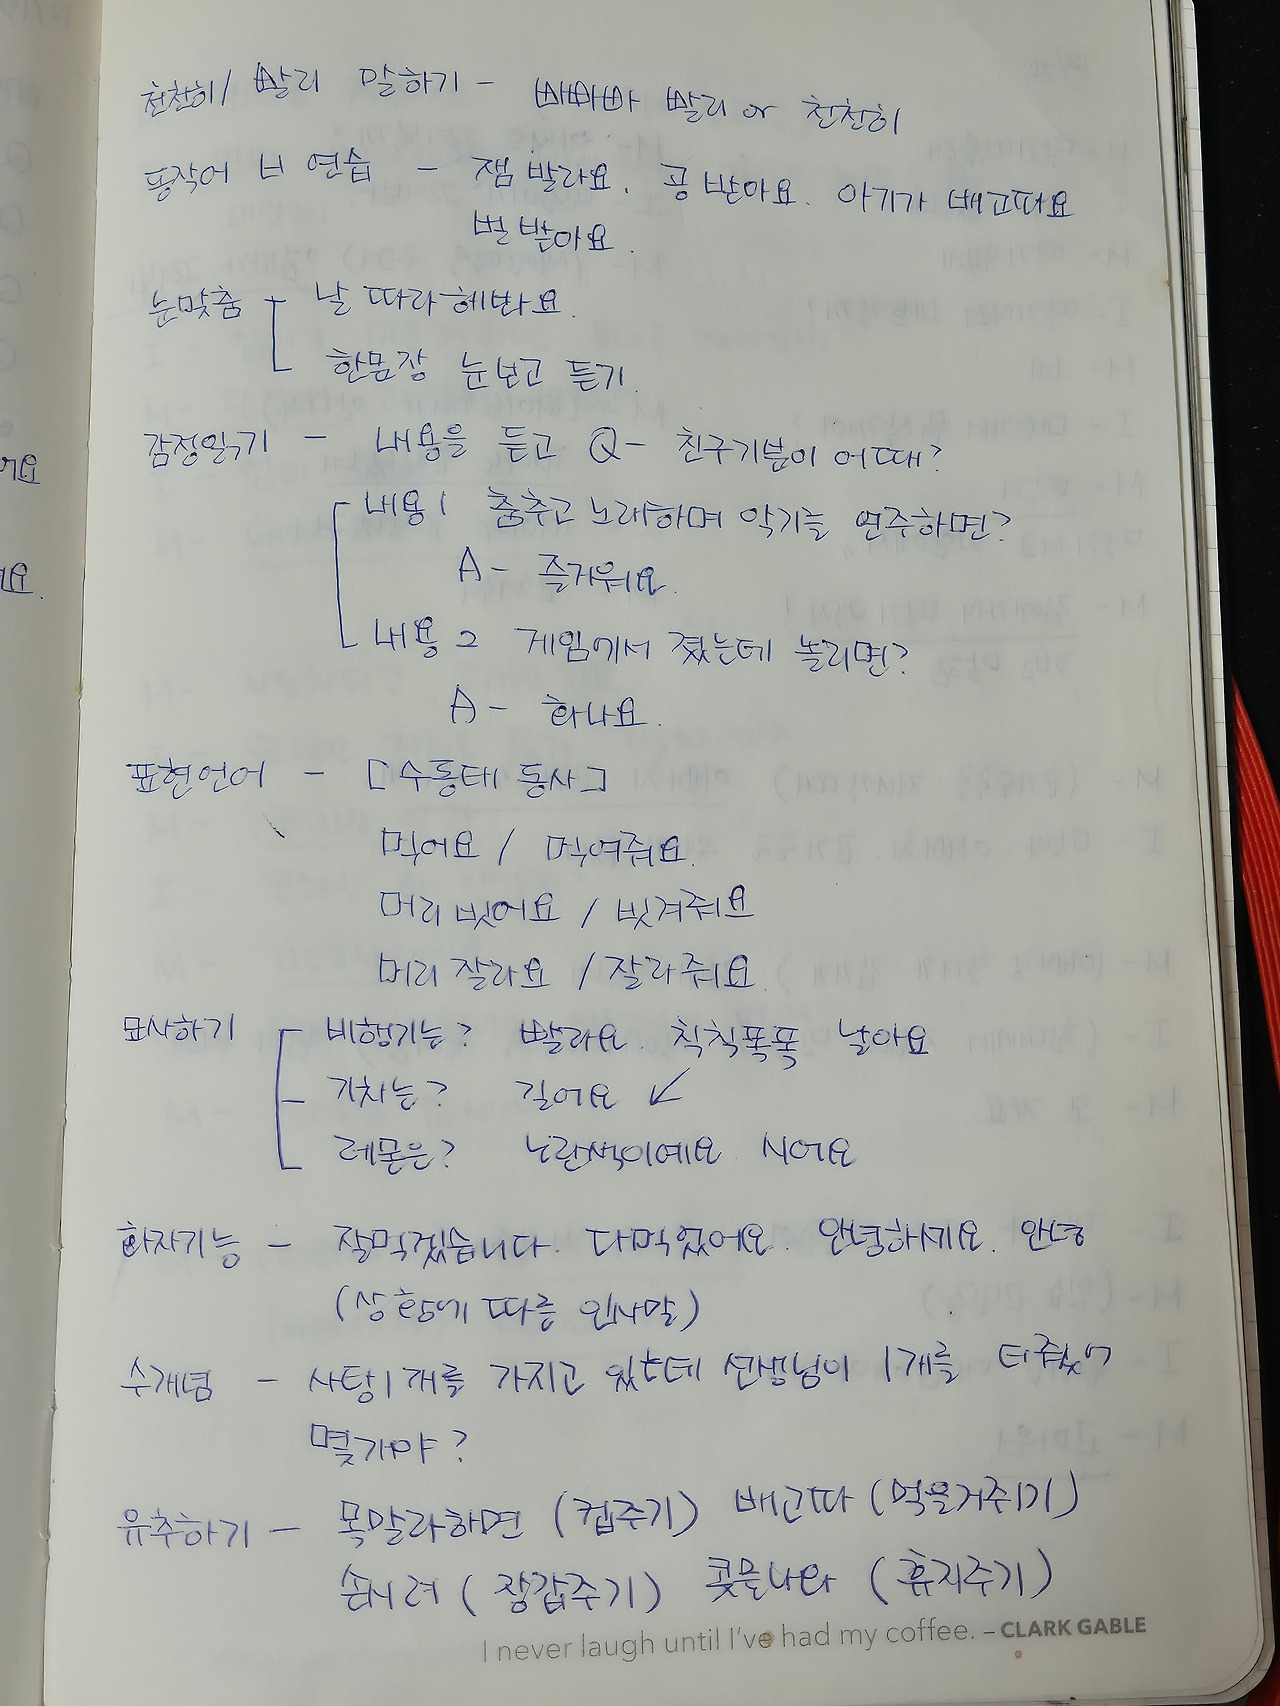 천천히/ 빨리 말하기 - 빠빠빠 빨리 or 천천히
동작어 ㅂ 연습 - 잼 발라요. 공 받아요. 아기가 배고파요
벌 받아요.
눈맞춤 - 날 따라해봐요.
한문장 눈보고 듣기.
감정읽기 - 내용을 듣고 Q- 친구기분이 어때?
내용1 춤추고 노래하며 악기를 연주하면?
A- 즐거워요.
내용2 게임에서 졌는데 놀리면?
A- 화나요.
표현언어 - [수동태 동사]
먹어요 / 먹여줘요.
머리 빗어요 / 빗겨줘요
머리 잘라요 / 잘라줘요.
묘사하기 비행기는? 빨라요. 칙칙폭폭 날아요
기차는? 길어요 ↙
레몬은? 노란색이예요 셔요
화자기능 - 잘먹겠습니다. 다먹었어요. 안녕하세요. 안녕
(상황에 따른 인사말)
수개념 - 사탕1개를 가지고 있는데 선생님이 1개를 더줬어
몇개야?
유추하기 - 목말라하면 (컵주기) 배고파 (먹을거주기)
손시려 (장갑주기) 콧물나와 (휴지주기)
I never laugh until I've had my coffee. – CLARK GABLE